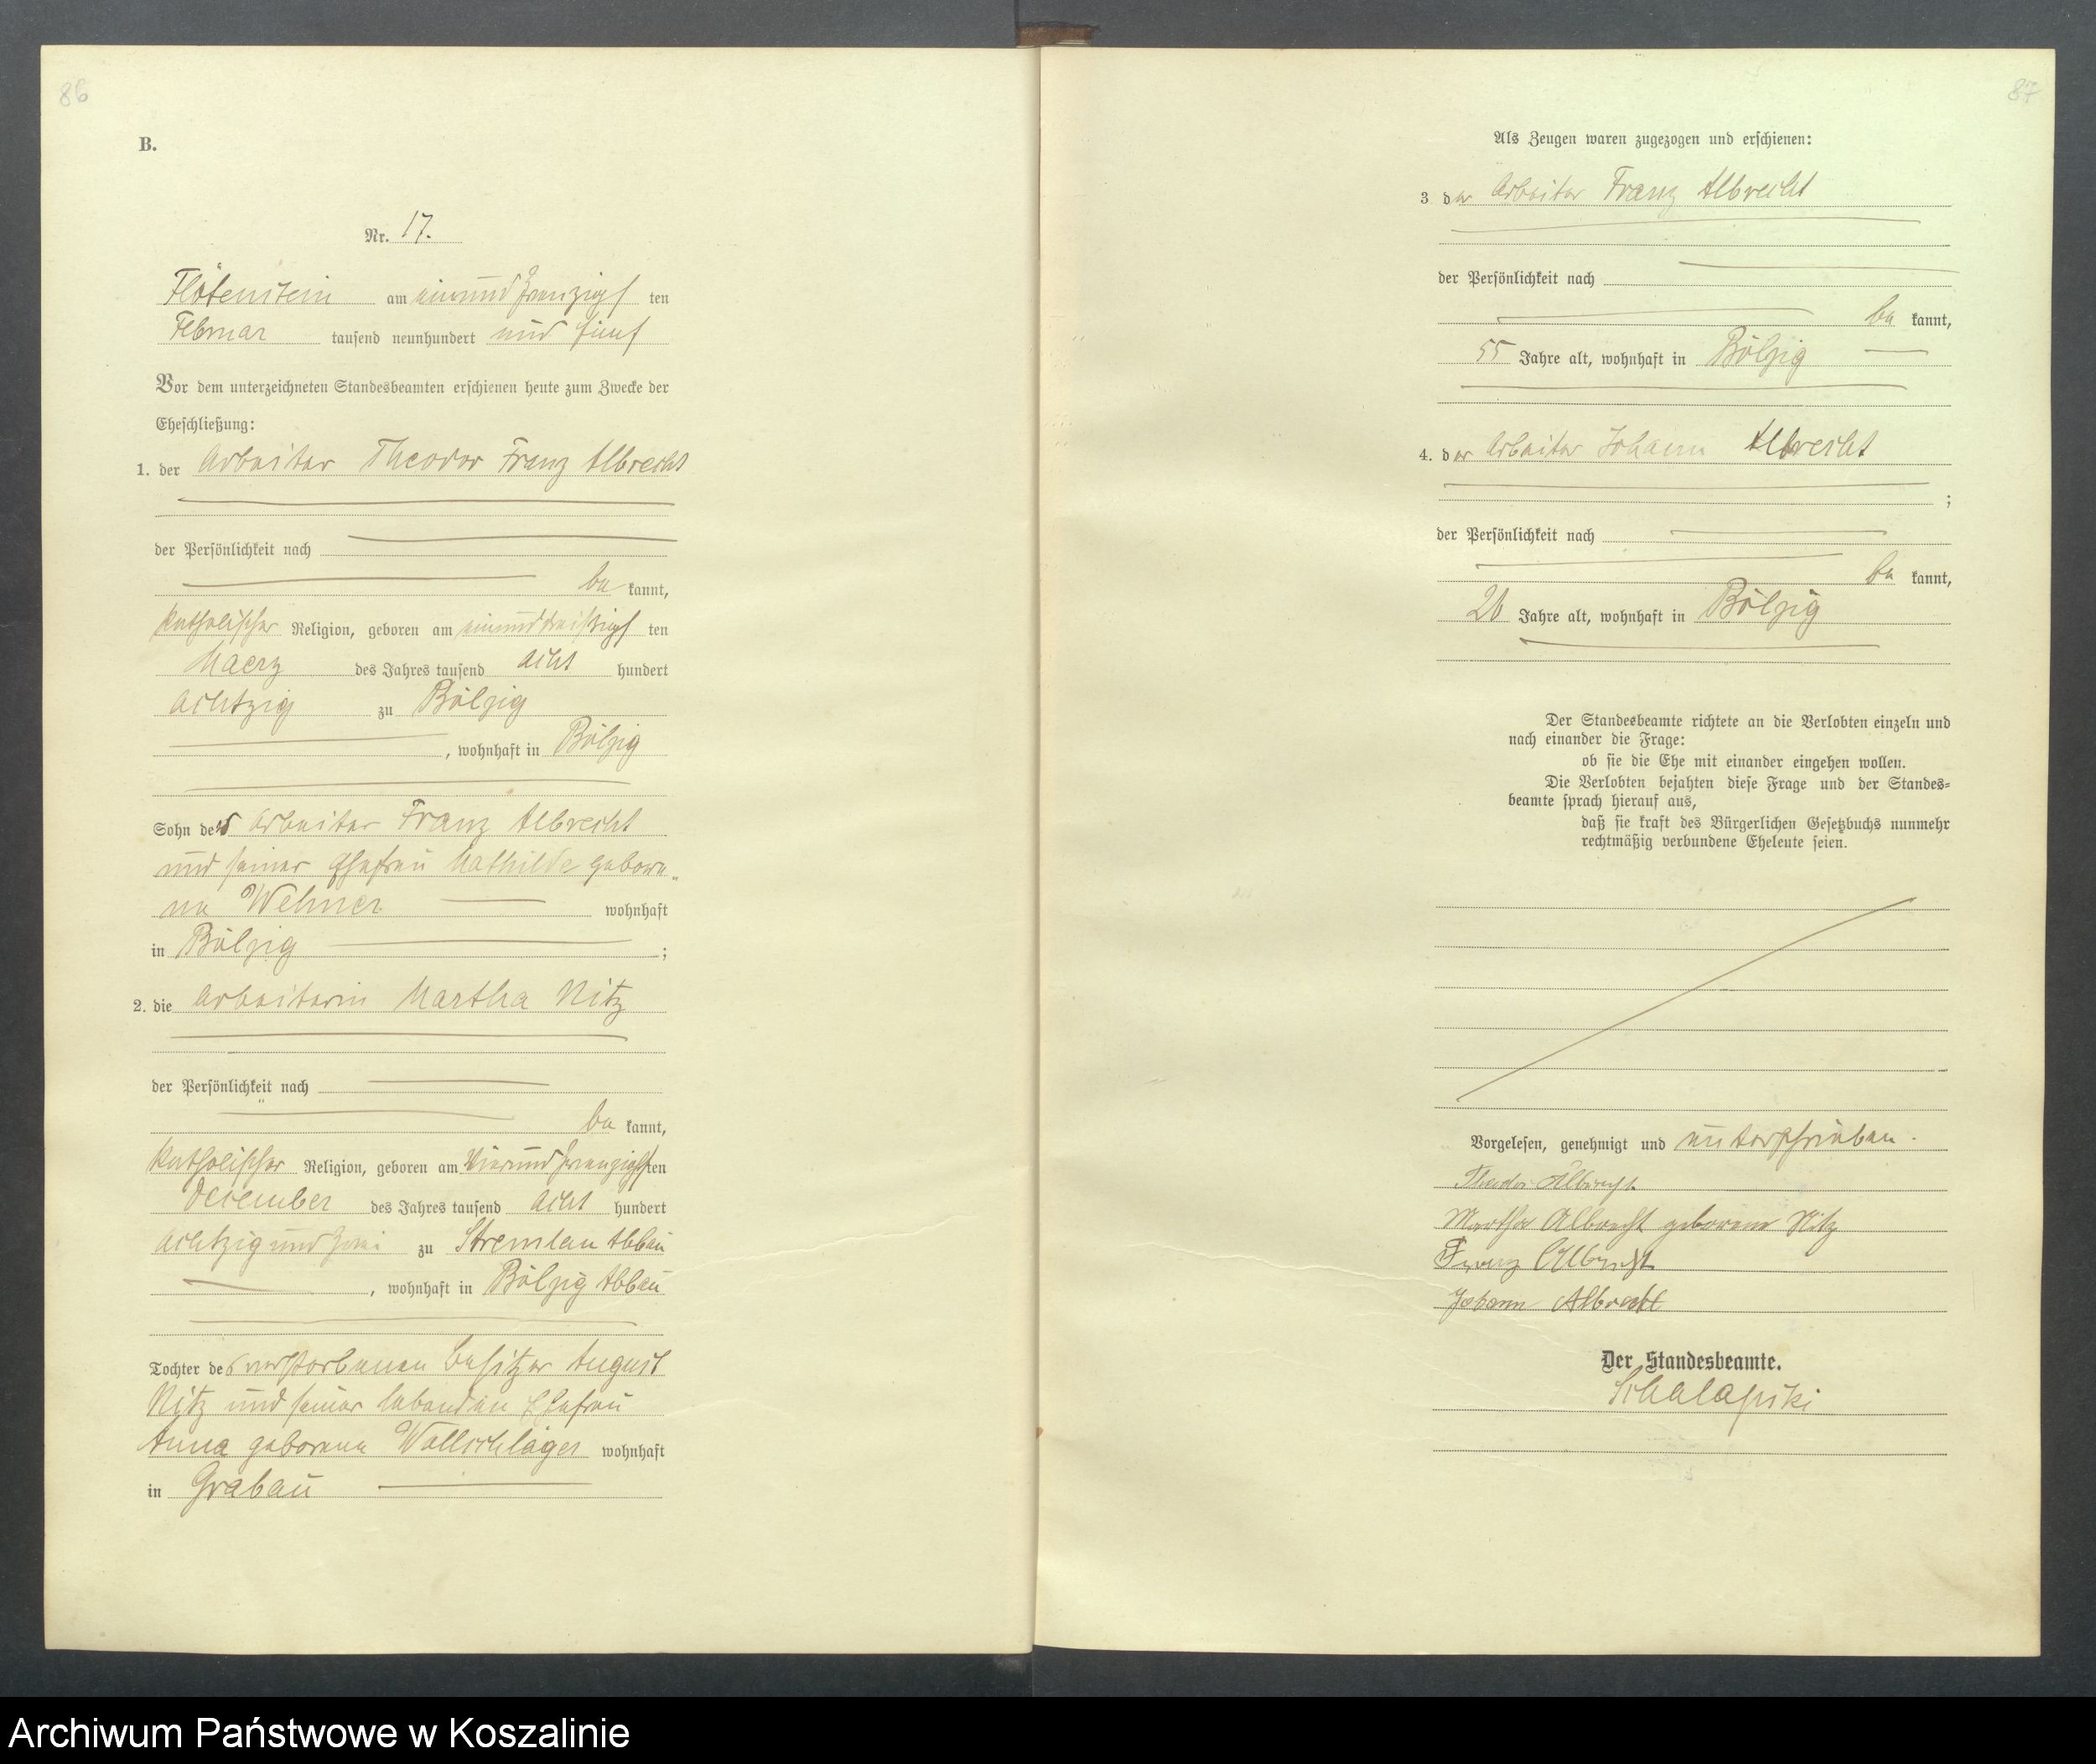 86
B.
Nr. 17.
Flötenstein am einundzwanzigs ten
Februar tausend neunhundert und fünf
Vor dem unterzeichneten Standesbeamten erschienen heute zum Zwecke der
Eheschließung:
1. der Arbeiter Theodor Franz Albrecht
der Persönlichkeit nach
be kannt,
katholischer Religion, geboren am einunddreißigs ten
Maerz des Jahres tausend acht hundert
achtzig zu Bölzig
, wohnhaft in Bölzig
Sohn des Arbeiter Franz Albrecht
und seiner Ehefrau Mathilde gebore-
ne Wehner wohnhaft
in Bölzig ;
2. die Arbeiterin Martha Nitz
der Persönlichkeit nach
be kannt,
katholischer Religion, geboren am vierundzwanzigsten
Dezember des Jahres tausend acht hundert
achtzig und zwei zu Stremlau Abbau
, wohnhaft in Bölzig Abbau
Tochter des verstorbenen Besitzer August
Nitz und seiner lebenden Ehefrau
Anna geborene Wollschläger wohnhaft
in Grabau
87
Als Zeugen waren zugezogen und erschienen:
3 der Arbeiter Franz Albrecht
der Persönlichkeit nach
be kannt,
55 Jahre alt, wohnhaft in Bölzig
4. der Arbeiter Johann Albrecht
;
der Persönlichkeit nach
be kannt,
26 Jahre alt, wohnhaft in Bölzig
Der Standesbeamte richtete an die Verlobten einzeln und
nach einander die Frage:
ob sie die Ehe mit einander eingehen wollen.
Die Verlobten bejahten diese Frage und der Standes-
beamte sprach hierauf aus,
daß sie kraft des Bürgerlichen Gesetzbuchs nunmehr
rechtmäßig verbundene Eheleute seien.
Vorgelesen, genehmigt und unterschrieben.
Theodor Albrecht
Martha Albrecht geborene Nitz
Franz Albrecht
Johann Albrecht
Der Standesbeamte.
Archiwum Państwowe w Koszalinie